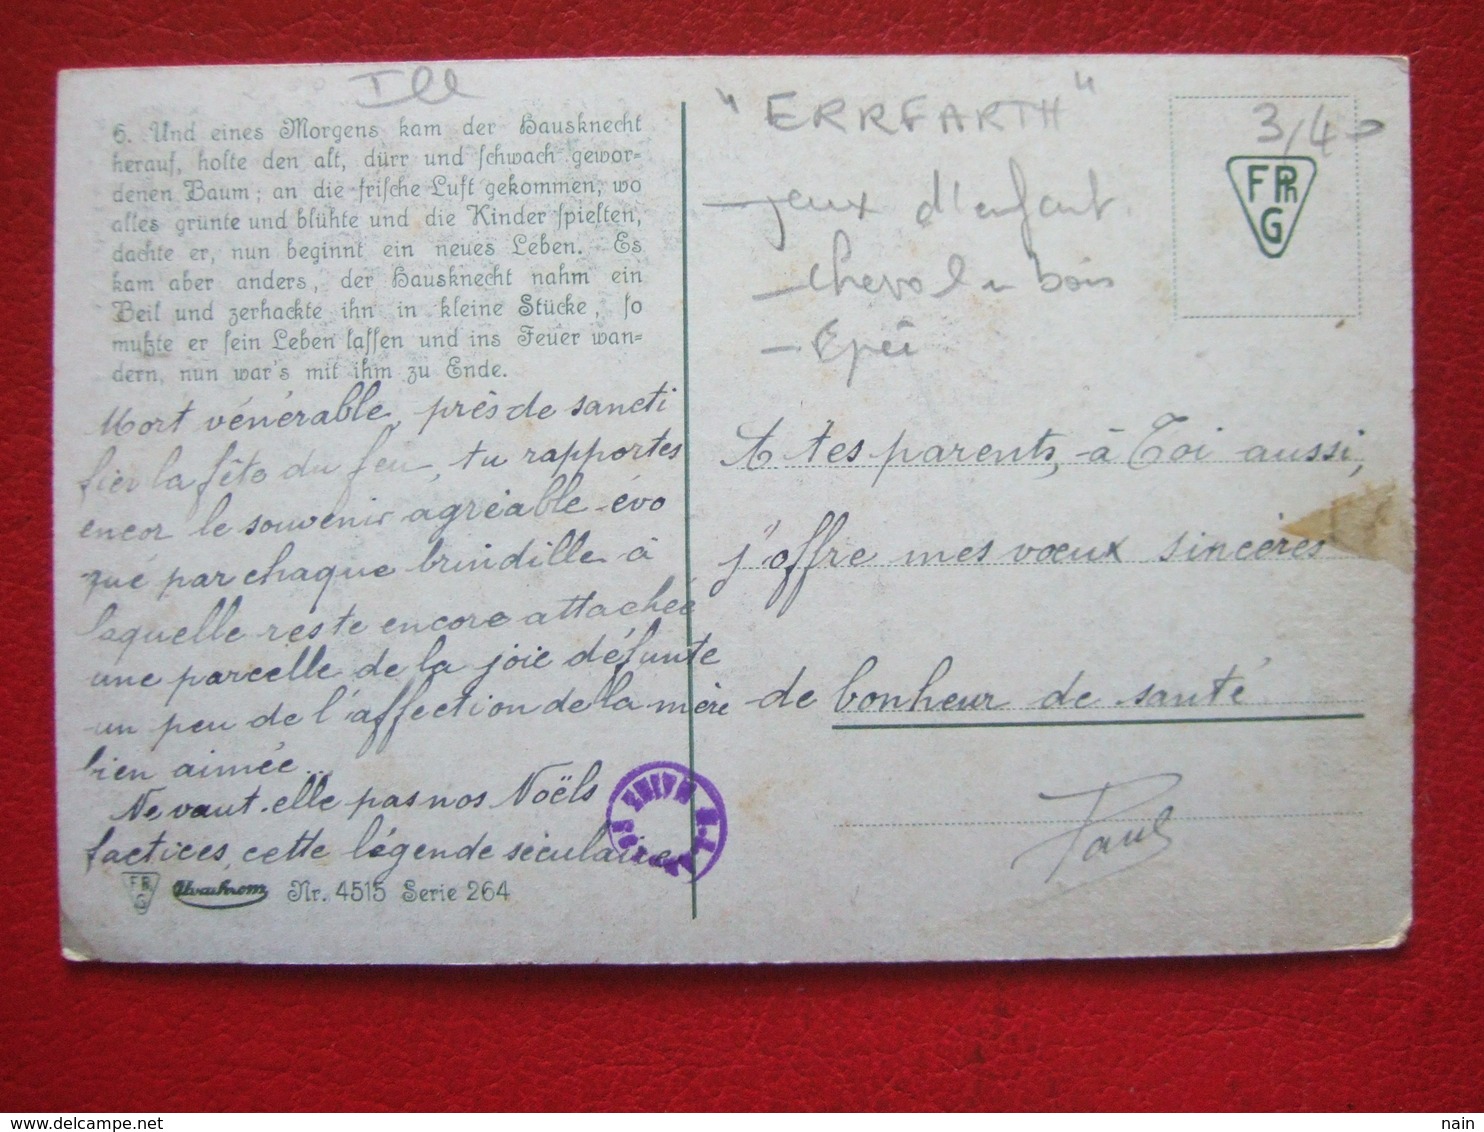 Ill
6. Und eines Morgens kam der Hausknecht
herauf, holte den alt, dürr und schwach gewor-
denen Baum; an die frische Luft gekommen, wo
alles grünte und blühte und die Kinder spielten,
dachte er, nun beginnt ein neues Leben. Es
kam aber anders, der Hausknecht nahm ein
Beil und zerhackte ihn in kleine Stücke, so
mußte er sein Leben lassen und ins Feuer wan-
dern, nun war's mit ihm zu Ende.
Mort vénérable, près de sancti
fier la fête du feu, tu rapportes
encor le souvenir agréable évo
qué par chaque brindille à
laquelle reste encore attachée
une parcelle de la joie défunte
un peu de l'affection de la mère
bien aimée...
Ne vaut-elle pas nos Noëls
factices, cette légende séculaire
FPhG Nr. 4515 Serie 264
"ERRFARTH"
- jeux d'enfant.
- cheval en bois
- Epée
3/40
FPhG
A tes parents, à Toi aussi,
j'offre mes vœux sincères
de bonheur de santé
Paul
MAINZ
delcampe.net
nain